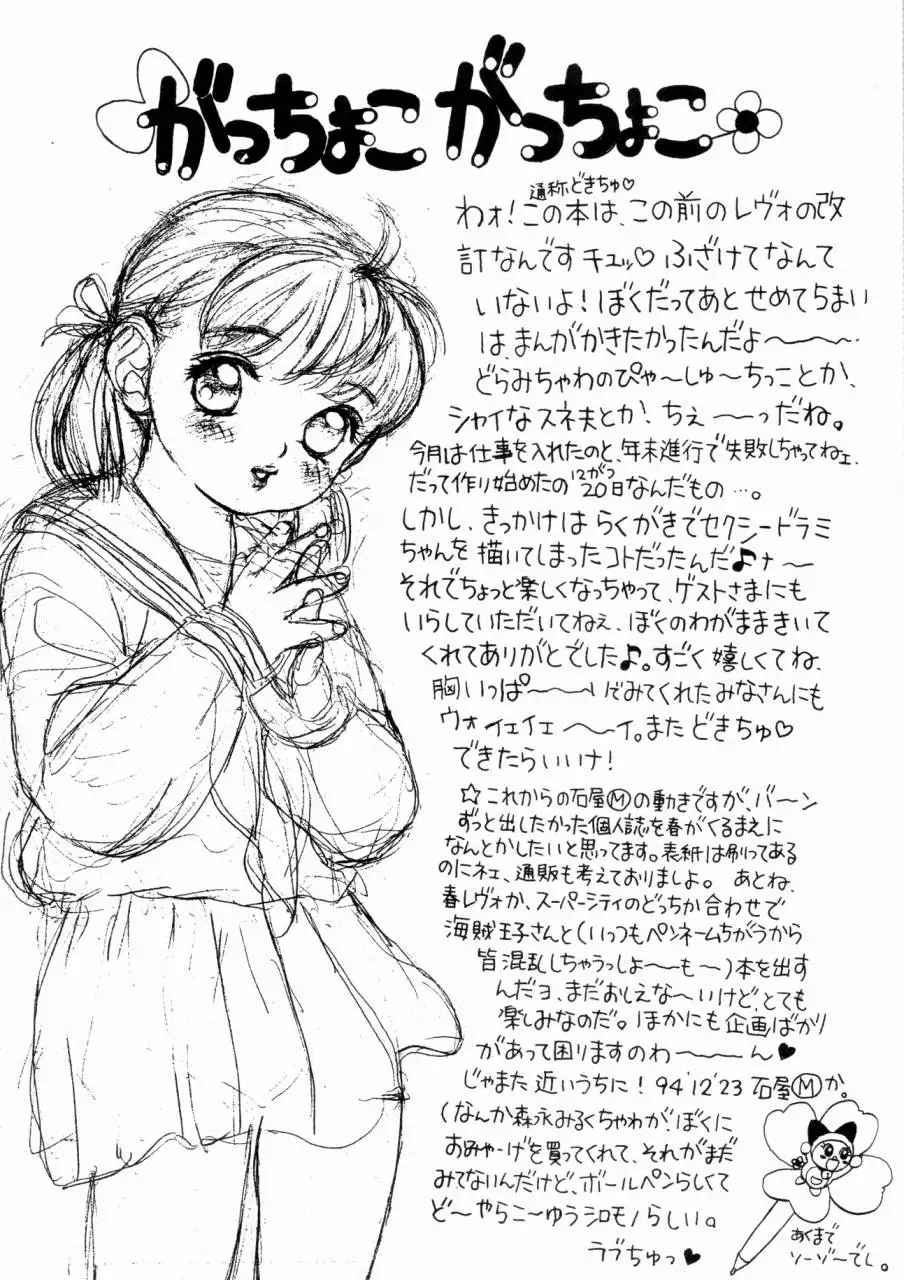 がっちょこ がっちょこ
通称どきちゅ♡
わォ!この本は、この前のレヴォの改
訂なんですチュッ♡ ふざけてなんて
いないよ!ぼくだってあとせめて5まい
は、まんがかきたかったんだよ〜〜〜
どらみちゃわのぴゃ〜しゅ〜ちっことか、
シャイなスネ夫とか、ちぇ〜〜っだね。
今月は仕事を入れたのと、年末進行で失敗しちゃってねェ、
だって作り始めたの12がつ20日なんだもの…。
しかし、きっかけはらくがきでセクシードラミ
ちゃんを描いてしまったコトだったんだ♪ナ〜
それでちょっと楽しくなっちゃって、ゲストさまにも
いらしていただいてねぇ、ぼくのわがままきいて
くれてありがとでした♪。すごく嬉しくてね、
胸いっぱ〜〜い。みてくれたみなさんにも
ウォィェイェ〜〜イ。またどきちゅ♡
できたらいいナ!
☆これからの石屋Ⓜの動きですが、バ〜ン
ずっと出したかった個人誌を春がくるまえに
なんとかしたいと思ってます。表紙は刷ってある
のにネェ、通販も考えておりましよ。 あとね、
春レヴォか、スーパーシティのどっちか合わせで
海賊王子さんと(いっつもペンネームちがうから
皆混乱しちゃうっしょ〜〜も〜)本を出す
んだヨ、まだおしえな〜いけど、とても
楽しみなのだ。ほかにも企画ばかり
があって困りますのわ〜〜〜ん♥
じゃまた近いうちに! 94'12'23 石屋Ⓜか。
(なんか森永みるくちゃわが、ぼくに
おみゃーげを買ってくれて、それがまだ
みてないんだけど、ボールペンらしくて
ど〜やらこ〜ゆうシロモノらしい。
ラブちゅっ♥
あくまで
ソーゾ〜でし。